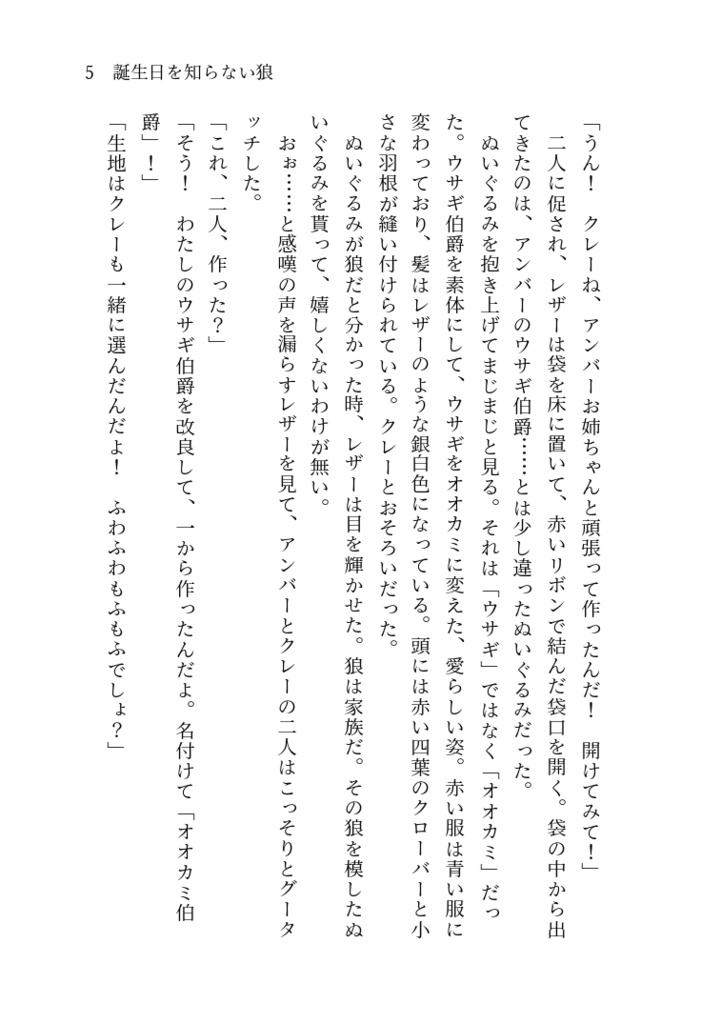 5　誕生日を知らない狼
「うん！　クレーね、アンバーお姉ちゃんと頑張って作ったんだ！　開けてみて！」
　二人に促され、レザーは袋を床に置いて、赤いリボンで結んだ袋口を開く。袋の中から出
てきたのは、アンバーのウサギ伯爵……とは少し違ったぬいぐるみだった。
　ぬいぐるみを抱き上げてまじまじと見る。それは「ウサギ」ではなく「オオカミ」だっ
た。ウサギ伯爵を素体にして、ウサギをオオカミに変えた、愛らしい姿。赤い服は青い服に
変わっており、髪はレザーのような銀白色になっている。頭には赤い四葉のクローバーと小
さな羽根が縫い付けられている。クレーとおそろいだった。
　ぬいぐるみが狼だと分かった時、レザーは目を輝かせた。狼は家族だ。その狼を模したぬ
いぐるみを貰って、嬉しくないわけが無い。
　おぉ……と感嘆の声を漏らすレザーを見て、アンバーとクレーの二人はこっそりとグータ
ッチした。
「これ、二人、作った？」
「そう！　わたしのウサギ伯爵を改良して、一から作ったんだよ。名付けて「オオカミ伯
爵」！」
「生地はクレーも一緒に選んだんだよ！　ふわふわもふもふでしょ？」